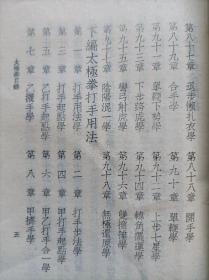 第八十七章 進步懶扎衣學 第八十八章 開手學
第八十九章 合手學 第九十章 單鞭學
第九十一章 單鞭下勢學 第九十二章 上步七星學
第九十三章 下步跨虎學 第九十四章 轉角擺蓮學
第九十五章 彎弓射虎學 第九十六章 雙撞捶學
第九十七章 陰陽混一學 第九十八章 無極還原學
下編太極拳打手用法
第一章 打手用法學 第二章 打手步法學
第三章 打手起點學 第四章 甲打手起點學
第五章 乙打手起點學 第六章 甲乙打手合一學
第七章 乙掤手學 第八章 甲擠手學
太極拳目錄
五